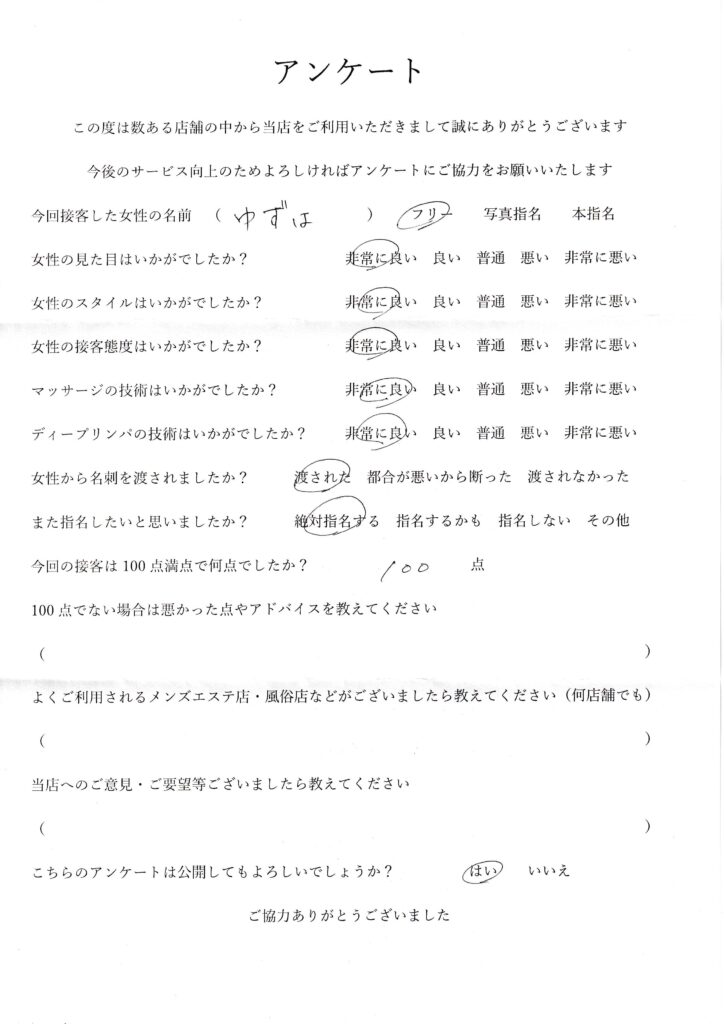 アンケート
この度は数ある店舗の中から当店をご利用いただきまして誠にありがとうございます
今後のサービス向上のためよろしければアンケートにご協力をお願いいたします
今回接客した女性の名前 （ ゆずは ） フリー 写真指名 本指名
女性の見た目はいかがでしたか？ 非常に良い 良い 普通 悪い 非常に悪い
女性のスタイルはいかがでしたか？ 非常に良い 良い 普通 悪い 非常に悪い
女性の接客態度はいかがでしたか？ 非常に良い 良い 普通 悪い 非常に悪い
マッサージの技術はいかがでしたか？ 非常に良い 良い 普通 悪い 非常に悪い
ディープリンパの技術はいかがでしたか？ 非常に良い 良い 普通 悪い 非常に悪い
女性から名刺を渡されましたか？ 渡された 都合が悪いから断った 渡されなかった
また指名したいと思いましたか？ 絶対指名する 指名するかも 指名しない その他
今回の接客は 100 点満点で何点でしたか？ 100 点
100 点でない場合は悪かった点やアドバイスを教えてください
（ ）
よくご利用されるメンズエステ店・風俗店などがございましたら教えてください（何店舗でも）
（ ）
当店へのご意見・ご要望等ございましたら教えてください
（ ）
こちらのアンケートは公開してもよろしいでしょうか？ はい いいえ
ご協力ありがとうございました